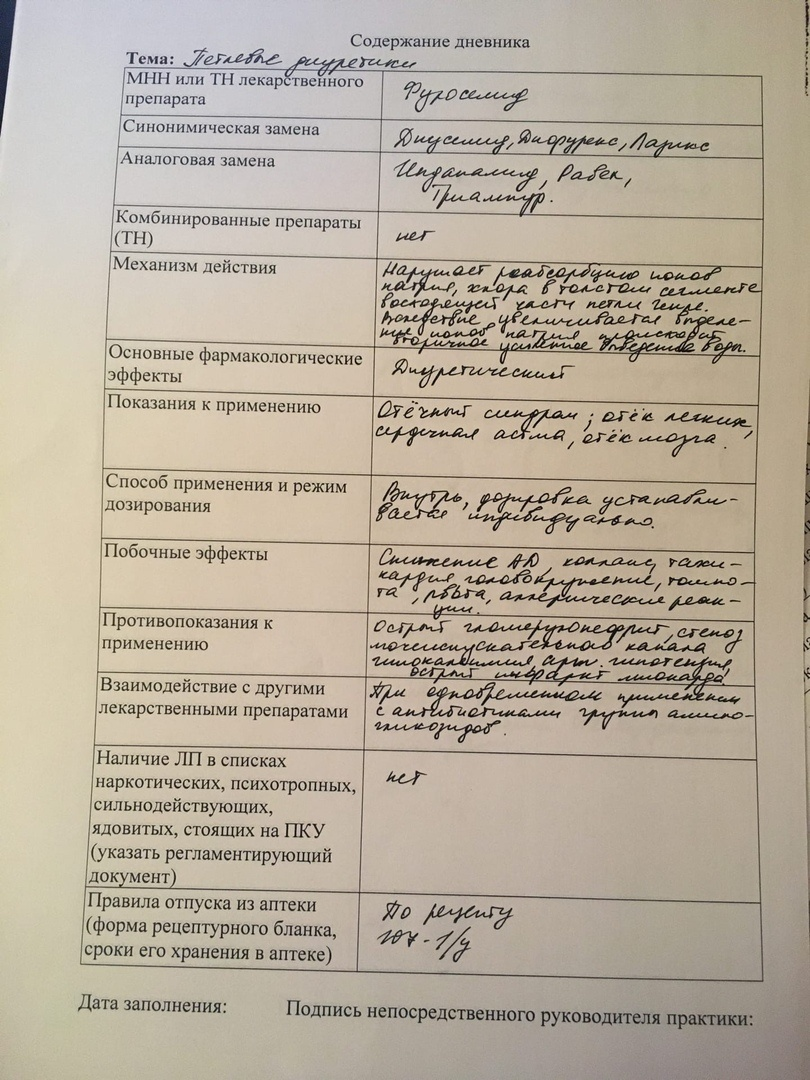 Содержание дневника
Тема: Петлевые диуретики
МНН или ТН лекарственного
препарата
Фуросемид
Синонимическая замена
Диусемид, Дифурекс, Лазикс
Аналоговая замена
Индапамид, Равек,
Триампур.
Комбинированные препараты
(ТН)
нет
Механизм действия
Нарушает реабсорбцию ионов
натрия, хлора в толстом сегменте
восходящей части петли Генле.
Вследствие увеличивается выделе-
ние ионов натрия происходит
вторичное усиленное выведение воды.
Основные фармакологические
эффекты
Диуретический
Показания к применению
Отёчный синдром; отёк легких,
сердечная астма, отёк мозга.
Способ применения и режим
дозирования
Внутрь, дозировка устанавли-
вается индивидуально.
Побочные эффекты
Снижение АД, коллапс, тахи-
кардия, головокружение, тошно-
та, рвота, аллергические реак-
ции.
Противопоказания к
применению
Острый гломерулонефрит, стеноз
мочеиспускательного канала
гипокалимия, арт. гипотензия,
острый инфаркт миокарда
Взаимодействие с другими
лекарственными препаратами
При одновременном применении
с антибиотиками группы амино-
гликозидов.
Наличие ЛП в списках
наркотических, психотропных,
сильнодействующих,
ядовитых, стоящих на ПКУ
(указать регламентирующий
документ)
нет
Правила отпуска из аптеки
(форма рецептурного бланка,
сроки его хранения в аптеке)
По рецепту
107-1/у
Дата заполнения: Подпись непосредственного руководителя практики: